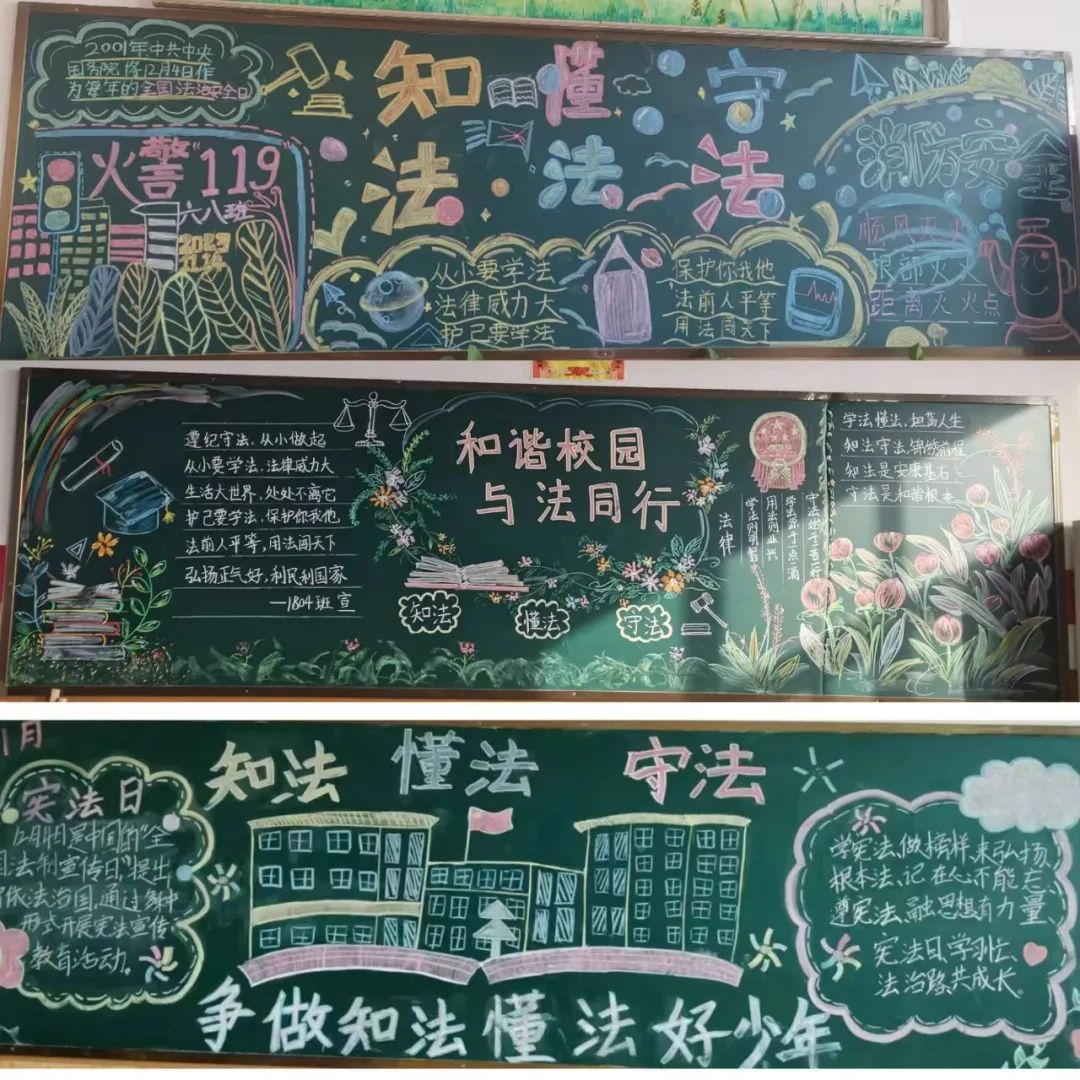 2001年中共中央
国务院将12月4日作
为每年的全国法治安全日
知 懂 守
法 法 法
火警"119"
六八班
从小要学法
法律威力大
护己要学法
保护你我他
法前人平等
用法闯天下
消防安
顺风灭火
根部灭火
距离灭火点
遵纪守法,从小做起
从小要学法,法律威力大
生活大世界,处处不离它
护己要学法,保护你我他
法前人平等,用法闯天下
弘扬正气好,利民利国家
—1804班 宣
和谐校园
与法同行
知法
懂法
守法
法律
学法懂法,坦荡人生
知法守法,锦绣前程
知法是安康基石
守法是和谐根本
1月
知法 懂法 守法
宪法日
12月4日是中国的"全
国法制宣传日"提出
依法治国,通过多种
形式开展宪法宣传
教育活动。
学宪法,做榜样,来弘扬
根本法、记在心不能忘
遵宪法、融思想有力量
宪法日,学习法、
法治路,共成长。
争做知法懂法好少年